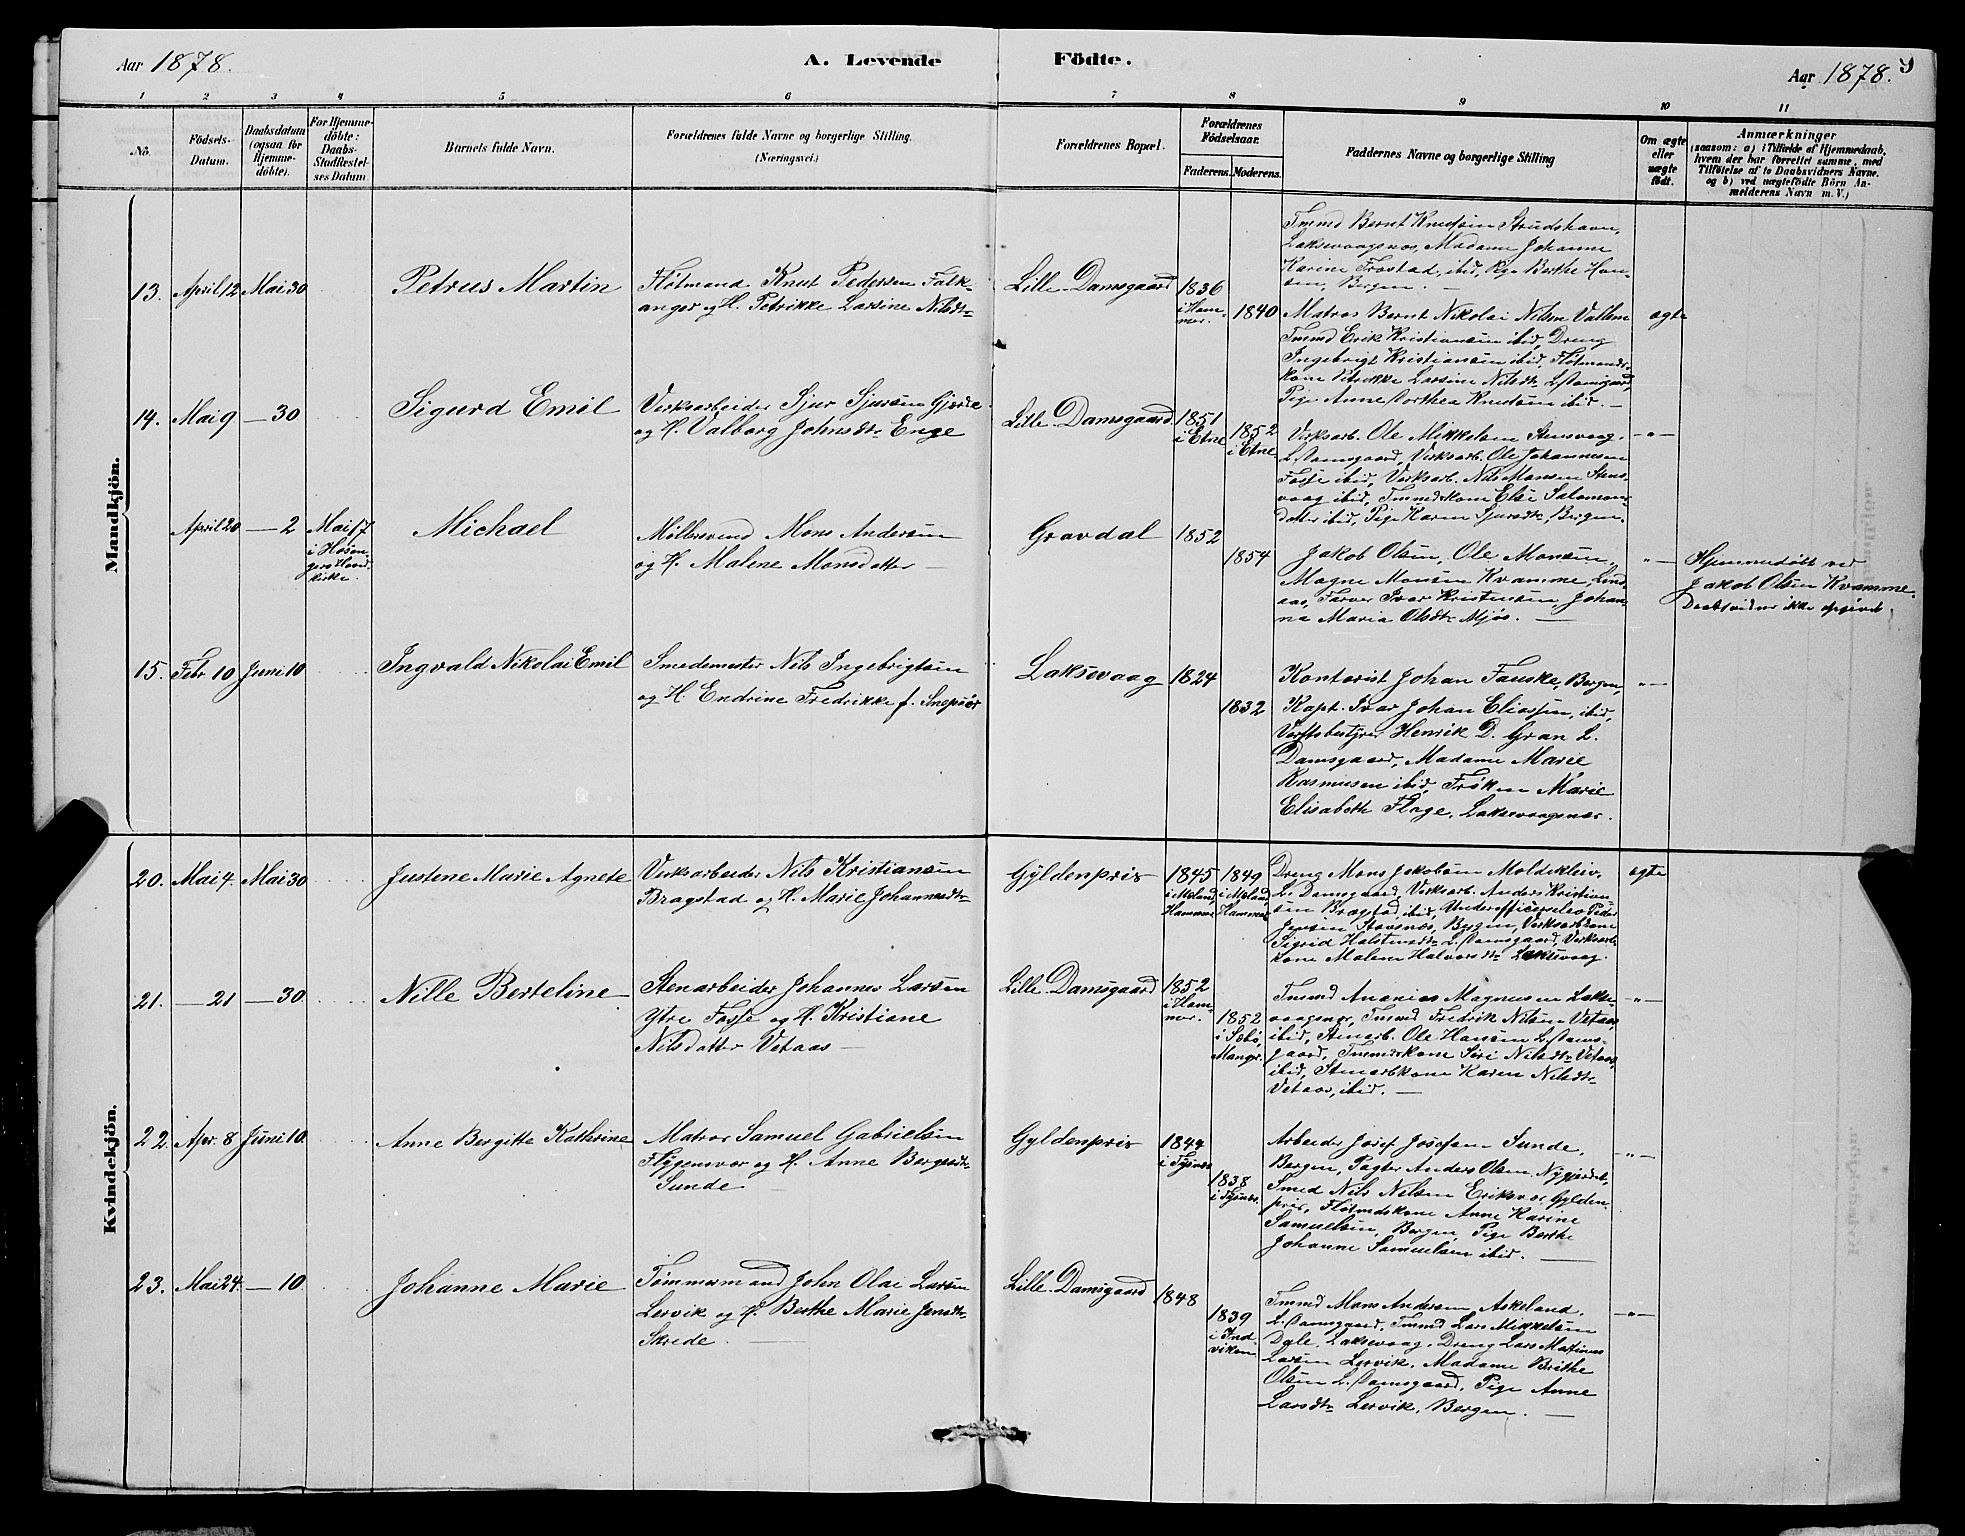 Aar 1878.
A. Levende Födte.
Aar 1878. 9
1 2 3 4 5 6 7 8 9 10 11
No.
Födsels-
Datum.
Daabsdatum
(ogsaa for
Hjemme-
döbte).
For Hjemme-
döbte:
Daabs-
Stadfæstel-
ses Datum.
Barnets fulde Navn.
Forældrenes fulde Navne og borgerlige Stilling.
(Næringsvei.)
Forældrenes Bopæl.
Forældrenes
Födselsaar.
Faderens. Moderens.
Faddernes Navne og borgerlige Stilling
Om ægte
eller
uægte
födt.
Anmærkninger
(saasom: a) i Tilfælde af Hjemmedaab,
hvem der har forrettet samme, med
Tilföielse af to Daabsvidners Navne.
og b) ved uægtefödte Börn An-
melderens Navn m. V.)
Mandkjön.
13. April 12 Mai 30
Petrus Martin
Fløtmand Knut Pedersen Falk-
anger og H. Petrikke Larsine Nilsdtr
Lille Damsgaard
1836
i Ham-
mer.
1840
Tmmd Bernt Knudsen Strudshavn,
Laksevaagsnes, Madame Johanne
Karine Frostad, ibid, Pge Berthe Han-
sen, Bergen. —
Matros Bernt Nikolai Nilsen Vallem
ægte
Tmmd Erik Kristiansen ibid, Dreng
Ingebrigt Kristiansen ibid, Fløtmands-
kone Petrikke Larsine Nilsdtr L. Damsgaard,
Pige Anne Dorthea Knudsen ibid. —
14. Mai 9 — 30
Sigurd Emil
Verksarbeider Sjur Sjursen Gjerde
og H. Valborg Johnsdtr Enge
Lille Damsgaard
1851
i Etne
1852
i Etne
Verksarb. Ole Mikkelsen Stensvaag.
L. Damsgaard, Verksarb. Ole Johannesen
Fosse ibid, Verksarb. Nils Monsen Stens-
vaag ibid, Tmmdskone Elsi Salomons-
datter ibid, Pige Karen Sjursdtr, Bergen.
—"—
April 20 — 2
Mai 17
i Høsan-
gers Hoved
kirke.
Michael
Møllersvend Mons Andersen
og H. Malene Monsdatter —
Gravdal
1852
1854
Jakob Olsen, Ole Monsen,
Magne Monsen Kvamme, Lind-
aas, Farver Ivar Kristensen, Johan-
na Maria Olsdtr Mjøs. —
"—
Hjemmedøbt ved
Jakob Olsen Kvamme.
Daabsvidner ikke opgivet.
15. Febr. 10 Juni 10
Ingvald Nikolai Emil
Smedemester Nils Ingebrigtsen
og H. Endrine Fredrikke f. Snepsør
Laksevaag
1824
1832
Kontorist Johan Fauske, Bergen,
Kapt. Ivar Johan Eliassen, ibid,
Verftsbestyrer Henrik D. Gran L.
Damsgaard, Madame Marie
Rasmusen ibid, Frøken Marie
Elisabeth Flage, Laksevaagsnes.
"—
Kvindekjön.
20. Mai 4. Mai 30
Justene Marie Agnete
Verksarbeider Nils Kristiansen
Bragstad og H. Marie Johannesdtr
Gyldenpris
1845
i Mjeland,
Hammer
1849
i Mjeland,
Hammer
Dreng Mons Jakobsen Moldekleiv.
L. Damsgaard, Verksarb. Anders Kristian-
sen Bragstad, ibid, Underofficerselev Peder
Jensen Stavenes, Bergen, Verksarbkone
Sigrid Halstensdtr L. Damsgaard, Verksarb-
kone Malene Halvorsdtr Laksevaag.
ægte
21. — 21 — 30
Nille Berteline
Stenarbeider Johannes Larsen
Ytre Fosse og H. Kristiane
Nilsdatter Vetaas —
Lille Damsgaard
1852
i Ham-
mer.
1852
i Sæbø,
Manger.
Tmmd Ananias Magnusen Lakse-
vaagsnes, Tmmd Fredrik Nilsen Vetaas,
ibid, Stenarb. Ole Hansen L. Dams-
gaard, Tmmdskone Siri Nilsdtr Vetaas,
ibid, Stenarbkone Karen Nilsdtr
Vetaas, ibid. —
—"—
22. Apr. 8 Juni 10
Anne Bergitte Kathrine
Matros Samuel Gabrielsen
Flygensvær og H. Anne Bergesdtr
Sunde —
Gyldenpris
1844
i Tysnes
1838
i Tysnes.
Arbeider Josef Josefsen Sunde,
Bergen, Pagter Anders Olsen, Nygjerdet,
Smed Nils Nilsen Eriksvær, Gylden-
pris, Fløtmdskone Anne Karine
Samuelsen, Bergen, Pige Berthe
Johanne Samuelsen ibid. —
—"—
23. Mai 24. — 10
Johanne Marie
Tømmermand John Olai Larsen
Lervik og H. Berthe Marie Jensdtr
Skrede. —
Lille Damsgaard
1848
1839
i Ind-
viken
Tmmd Mons Andersen Askeland.
L. Damsgaard, Tmmd Lars Mikkelsen
Dale, Laksevaag, Dreng Lars Martinus
Larsen Lervik, Madame Brithe
Olsen L. Damsgaard, Pige Anne
Larsdtr Lervik, Bergen. —
—"—